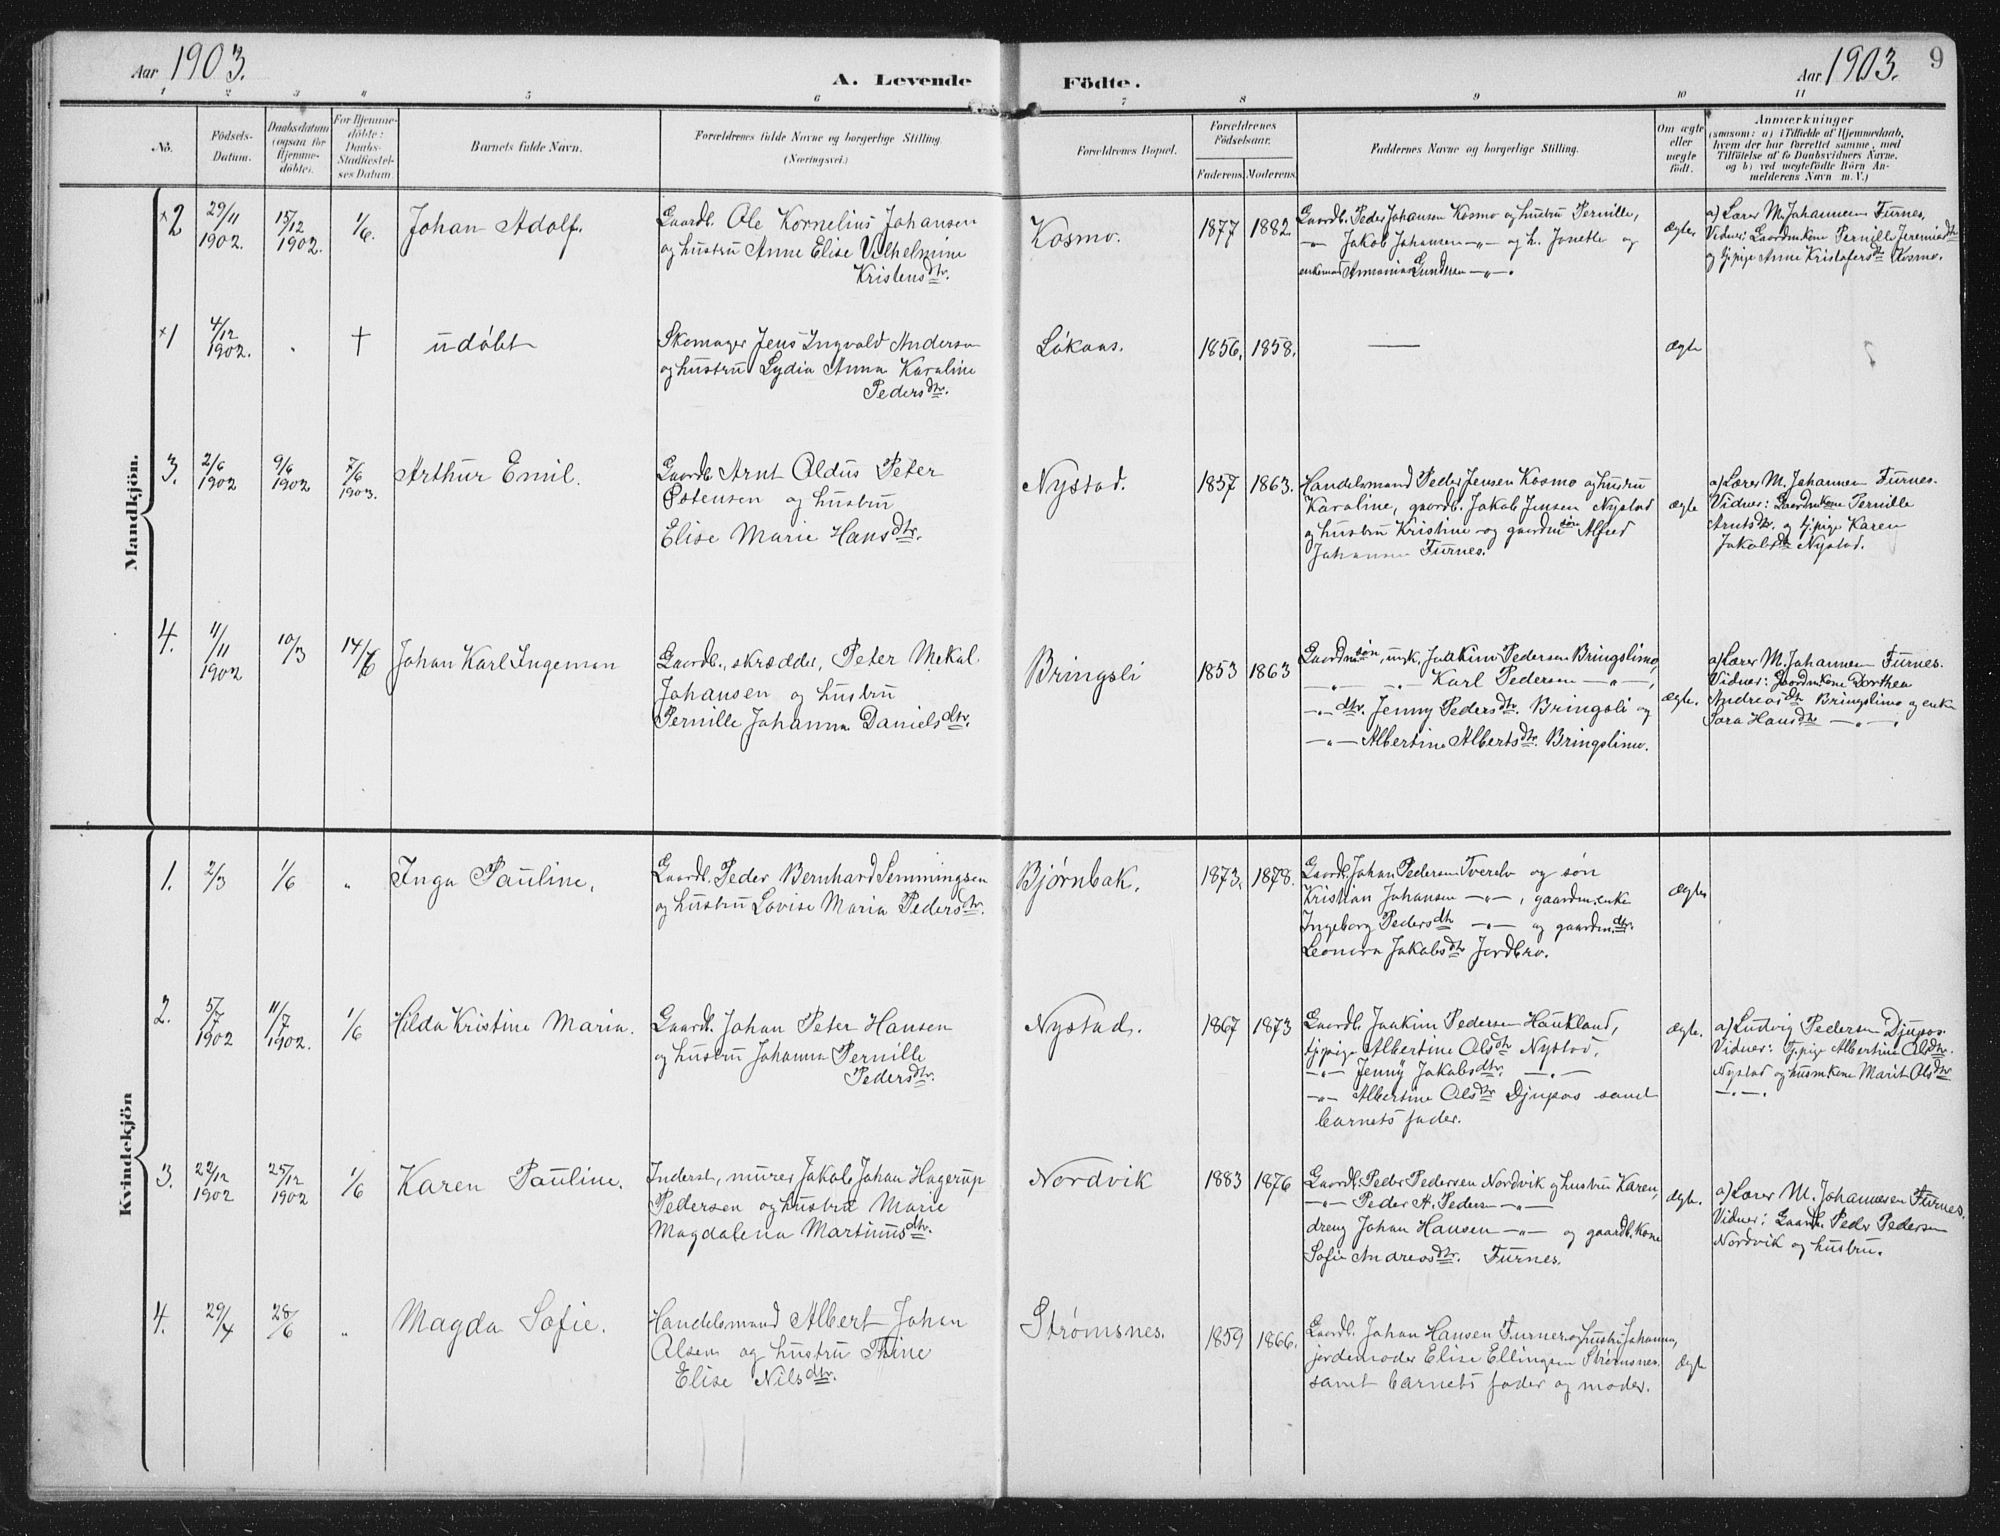 Aar 1903.
A. Levende
Födte.
Aar 1903.
9
1 2 3 4 5 6 7 8 9 10 11
No.
Födsels-
Datum.
Daabsdatum
(ogsaa for
Hjemme-
döbte).
For Hjemme-
döbte:
Daabs-
Stadfæstel-
ses Datum
Barnets fulde Navn.
Forældrenes fulde Navne og borgerlige Stilling.
(Næringsvei.)
Forældrenes Bopæl.
Forældrenes
Födselsaar.
Faderens. Moderens.
Faddernes Navne og borgerlige Stilling.
Om ægte
eller
uægte
födt.
Anmærkninger
(saasom: a) i Tilfælde af Hjemmedaab,
hvem der har forrettet samme, med
Tilföielse af to Daabsvidners Navne,
og b) ved uægtefödte Börn An-
melderens Navn m. V.)
Mandkjön.
×2
29/11
1902.
15/12
1902.
1/6.
Johan Adolf.
Gaardb. Ole Kornelius Johansen
og hustru Anne Elise Vilhelmine
Kristensdtr.
Kosmo.
1877
1882
Gaardb. Peder Johansen Kosmo og hustru Pernille,
—"— Jakob Johansen —"— og h. Jonette og
enkemand Ammanias Gundersen —"—.
ægte
a) Lærer M. Johannesen Furnes.
Vidner: Gaardmkone Pernille Jeremiasdtr
og tj.pige Anne Kristofersdtr Kosmo.
×1
4/12
1902.
.
†
udøbt
Skomager Jens Ingvald Andersen
og hustru Lydia Anna Karoline
Pedersdtr.
Løkaas.
1856.
1858.
—
ægte
3.
2/6
1902
9/6
1902
7/6
1903.
Arthur Emil.
Gaardb. Arnt Aldus Peter
Østensen og hustru
Elise Marie Hansdtr.
Nystad.
1857
1863.
Handelsmand Peder Jensen Kosmo og hustru
Karoline, gaardb. Jakob Jensen Nystad
og hustru Kristine og gaardmsøn Alfred
Johansen Furnes.
ægte
a) Lærer M. Johannesen Furnes.
Vidner: Gaardmkone Pernille
Arntsdtr. og tj.pige Karen
Jakobsdtr Nystad.
4.
11/11
1902
10/3
14/6
Johan Karl Ingeman
Gaardb., skrædder, Peter Mekal
Johansen og hustru
Pernille Johanna Danielsdtr.
Bringsli
1853
1863
Gaardmsøn, ungk. Joakim Pedersen Bringslimo,
—"— —"— Karl Pedersen —"—,
—"—dtr. Jenny Pedersdtr. Bringsli og
—"— Albertine Albertsdtr. Bringslimo.
ægte.
a) Lærer M. Johannesen Furnes.
Vidner: Gaardmkone Dorthea
Andreasdtr Bringslimo og enke
Sara Hansdtr —"—.
Kvindekjön
1.
2/3
1/6
"
Inga Pauline.
Gaardb. Peder Bernhard Semmingsen
og hustru Lovise Maria Pedersdtr.
Bjørnbak.
1873.
1878.
Gaardb. Johan Pedersen Tverelv og søn
Kristian Johansen —"—, gaardm.enke
Ingeborg Pedersdtr —"— og gaardm.dtr.
Leonora Jakobsdtr Jordbro.
ægte
2.
5/7
1902
11/7
1902.
1/6
Hilda Kristine Maria.
Gaardb. Johan Peter Hansen
og hustru Johanna Pernille
Pedersdtr.
Nystad.
1867
1873
Gaardb. Joakim Pedersen Haukland,
tj.pige Albertine Olsdtr Nystad,
—"— Jenny Jakobsdtr. —"—.
—"— Albertine Olsdtr Djupos samt
barnets fader.
ægte.
a) Ludvig Pedersen Djupos.
Vidner: Tj.pige Albertine Olsdtr.
Nystad og husm.kone Marit Olsdtr
—"—.
3.
22/12
1902
25/12
1902
1/6
Karen Pauline.
Inderst, murer Jakob Johan Hagerup
Pedersen og hustru Marie
Magdalena Martinusdtr.
Nordvik
1883
1876
Gaardb. Peder Pedersen Nordvik og hustru Karen,
—"— Peder A. Pedersen —"—
dreng Johan Hansen —"— og gaardb.kone
Sofie Andreasdtr. Furnes.
ægte.
a) Lærer M. Johannesen Furnes.
Vidner: Gaardb. Peder Pedersen
Nordvik og hustru.
4.
29/4
28/6
"
Magda Sofie.
Handelsmand Albert Johan
Olsen og hustru Trine
Elise Nilsdtr.
Strømsnes.
1859
1866.
Gaardb. Johan Hansen Furnes og hustru Johanna,
jordemoder Elise Ellingsen Strømsnes.
samt barnets fader og moder.
ægte